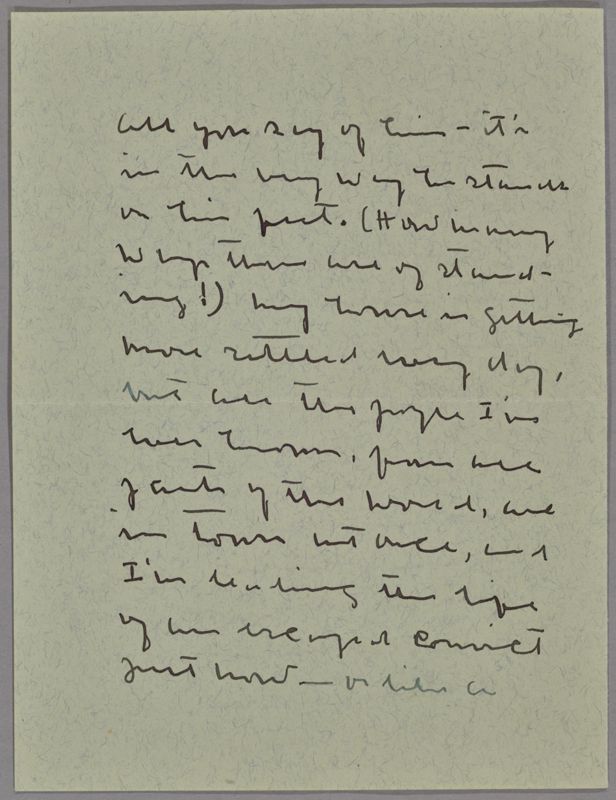 all you say of him – it's
in the very way he stands
on his feet. (How many
ways there are of stand-
ing!) My house is getting
more settled every day,
but all the people I've
ever known, from all
parts of the world, are
in town at once, and
I'm leading the life
of an escaped convict
just now — or like a